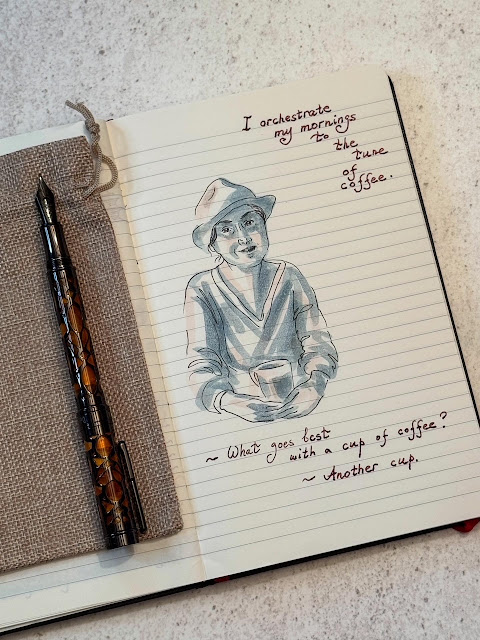 I orchestrate
my mornings
to
the
tune
of
coffee.
~ What goes best
with a cup of coffee?
~ Another cup.